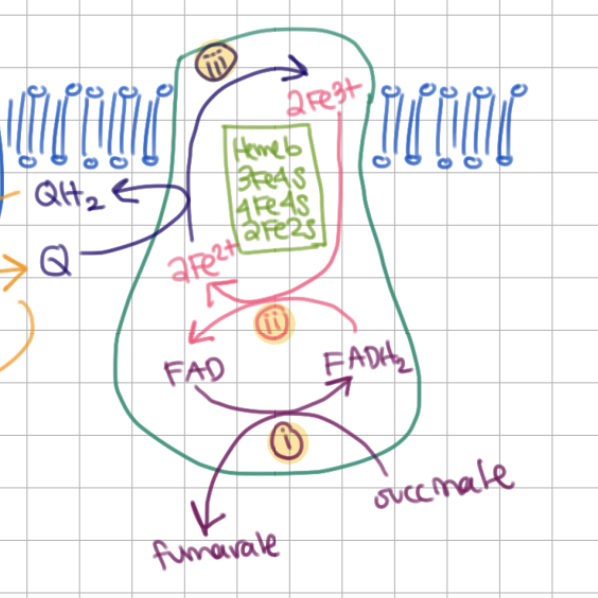 iii
2Fe3+
Heme b
3Fe4S
4Fe4S
2Fe2S
QH2
Q
2Fe2+
ii
FAD
FADH2
i
succinate
fumarate